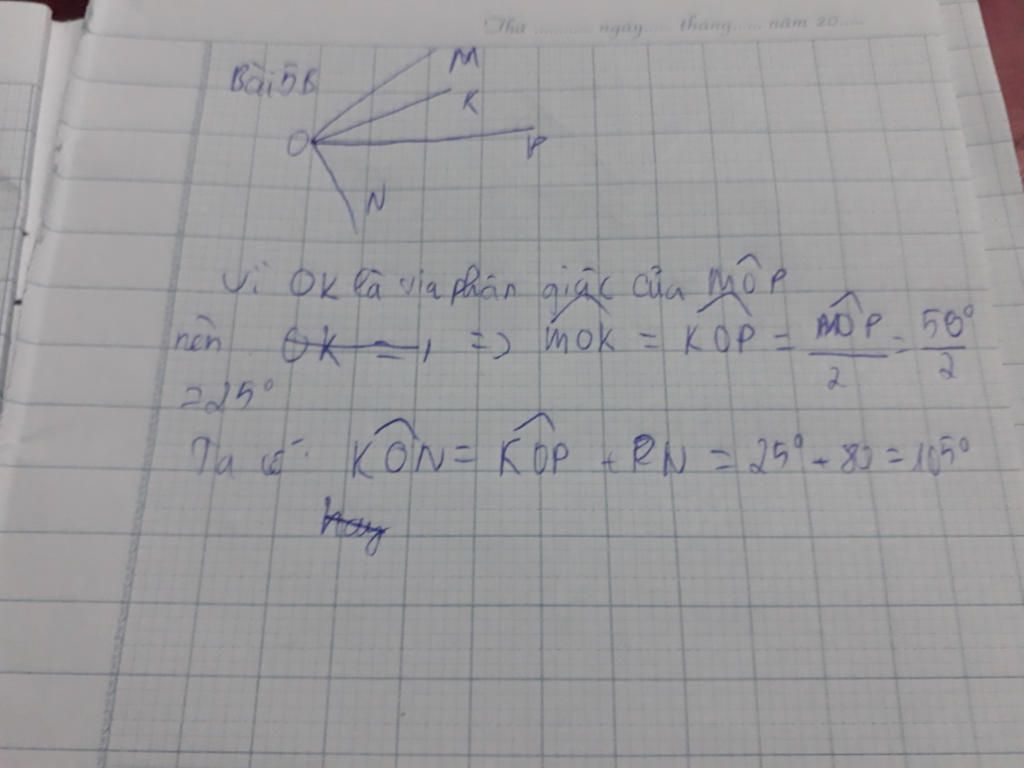 Thứ ............ ngày ...... tháng ...... năm 20......
Bài 5B
M
K
O
P
N
Vì OK là tia phân giác của MÔP
nên OK = , => MOK = KOP = MOP/2 = 50°/2
= 25°
Ta có: KON = KOP + PN = 25° + 80 = 105°
hay